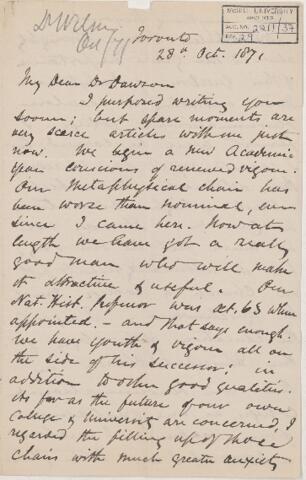 Dr Wilson
Oct /71
McGILL UNIVERSITY
ARCHIVES
ACC. NO. 2211/37
REF. 29
Toronto
28th Oct. 1871
My Dear Dr Dawson
I purposed writing you
sooner; but spare moments are
very scarce articles with me just
now. We begin a new Academic
year conscious of renewed vigour.
Our Metaphysical chair has
been worse than nominal, ever
since I came here. Now at
length we have got a really
good man who will make
it attractive & useful. Our
Nat. Hist. Professor was æt. 63 when
appointed. – and that says enough.
We have youth & vigour all on
the side of his successor: in
addition to other good qualities.
As far as the future of our own
College & University are concerned, I
regarded the filling up of those
chairs with much greater anxiety